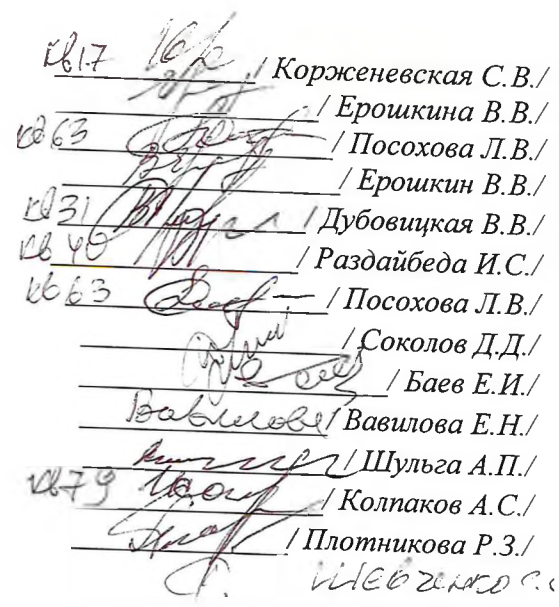 кв17 / Корженевская С.В./
/ Ерошкина В.В./
кв 63 / Посохова Л.В./
/ Ерошкин В.В./
кв 31 / Дубовицкая В.В./
кв 40 / Раздайбеда И.С./
кв 63 / Посохова Л.В./
/ Соколов Д.Д./
/ Баев Е.И./
Вавилова / Вавилова Е.Н./
/ Шульга А.П./
кв79 / Колпаков А.С./
/ Плотникова Р.З./
Шевченко С.